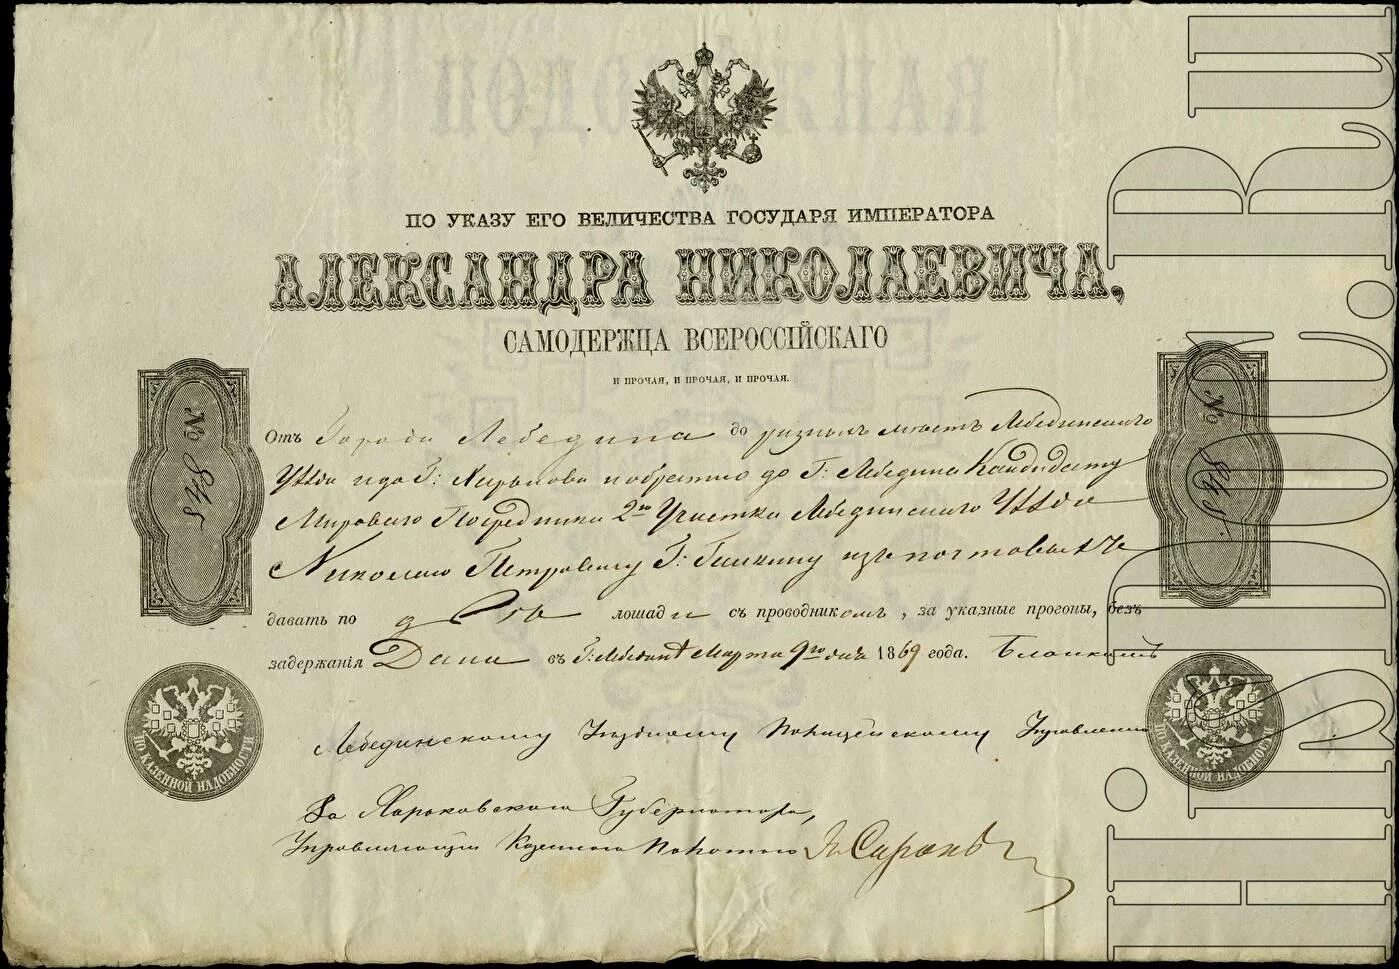 ПОДОРОЖНАЯ
ПО УКАЗУ ЕГО ВЕЛИЧЕСТВА ГОСУДАРЯ ИМПЕРАТОРА
АЛЕКСАНДРА НИКОЛАЕВИЧА,
САМОДЕРЖЦА ВСЕРОССІЙСКАГО
И ПРОЧАЯ, И ПРОЧАЯ, И ПРОЧАЯ.
№ 845
№ 845
Отъ Города Лебедина до разныхъ мѣстъ Лебединскаго
Уѣзда и до Г: Харькова и обратно до Г: Лебедина Кандидату
Мироваго Посредника 2го Участка Лебединскаго Уѣзда
Николаю Петровичу Г: изъ почтовыхъ
давать по двѣ лошади съ проводникомъ, за указные прогоны, безъ
задержанія Дана въ Г: Марта 9го дня 1869 года. Бланкомъ
Лебединскому Уѣздному Полицейскому Управленію
За Харьковскаго Губернатора,
Управляющій Казенною Палатою
ПО КАЗЕННОЙ НАДОБНОСТИ
ПО КАЗЕННОЙ НАДОБНОСТИ
HISDOC.RU